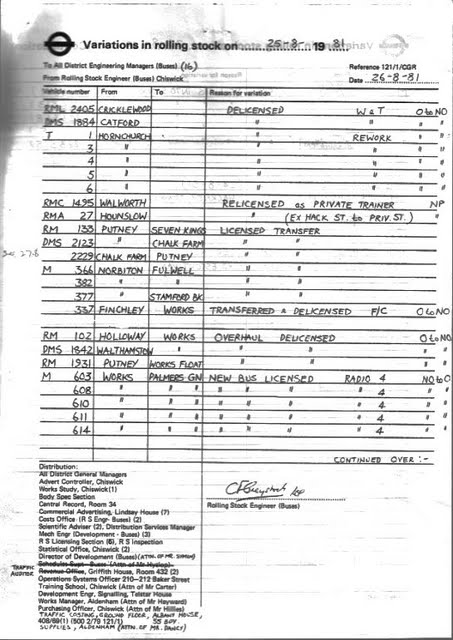 Variations in rolling stock on 25-8- 19 81
To All District Engineering Managers (Buses) (16)
From Rolling Stock Engineer (Buses) Chiswick
Reference 121/1/CGR
Date 26-8-81
Vehicle number From To Reason for variation
RML 2405 CRICKLEWOOD DELICENSED W & T O to NO
DMS 1884 CATFORD " " " "
T 1 HORNCHURCH " REWORK " "
3 " " " " "
4 " " " " "
5 " " " " "
6 " " " " "
RMC 1495 WALWORTH RELICENSED as PRIVATE TRAINER NP
RMA 27 HOUNSLOW " (EX HACK. ST. to PRIV. ST.) "
RM 133 PUTNEY SEVEN KINGS LICENSED TRANSFER
DMS 2123 " CHALK FARM " "
27-8 2229 CHALK FARM PUTNEY " "
M 366 NORBITON FULWELL " "
382 " " " "
377 " STAMFORD BK " "
337 FINCHLEY WORKS TRANSFERRED & DELICENSED F/C O to NO
RM 102 HOLLOWAY WORKS OVERHAUL DELICENSED O to NO
DMS 1842 WALTHAMSTOW " " " " "
RM 1931 PUTNEY WORKS FLOAT " " " "
M 603 WORKS PALMERS GN NEW BUS LICENSED RADIO 4 NO to O
608 " " " " " " 4 " "
610 " " " " " " 4 " "
611 " " " " " " 4 " "
614 " " " " " " 4 " "
CONTINUED OVER :-
Distribution:
All District General Managers
Advert Controller, Chiswick
Works Study, Chiswick (1)
Body Spec Section
Central Record, Room 34
Commercial Advertising, Lindsay House (7)
Costs Office (R S Engr- Buses) (2)
Scientific Adviser (2), Distribution Services Manager
Mech Engr (Development - Buses) (3)
R S Licensing Section (6), R S Inspection
Statistical Office, Chiswick (2)
Director of Development (Buses) (ATTN. OF MR. SIMMON)
Schedules Supt - Buses (Attn of Mr Hyslop)
TRAFFIC AUDITOR Revenue Office, Griffith House, Room 432 (2)
Operations Systems Officer 210-212 Baker Street
Training School, Chiswick (Attn of Mr Carter)
Development Engr, Signalling, Telstar House
Works Manager, Aldenham (Attn of Mr Hayward)
Purchasing Officer, Chiswick (Attn of Mr Hillies)
TRAFFIC COSTING, GROUND FLOOR, ALBANY HOUSE,
408/89(1) (500 2/79 121/1) 55 BDY.
SUPPLIES, ALDENHAM (ATTN. OF MR. DANCY)
Rolling Stock Engineer (Buses)